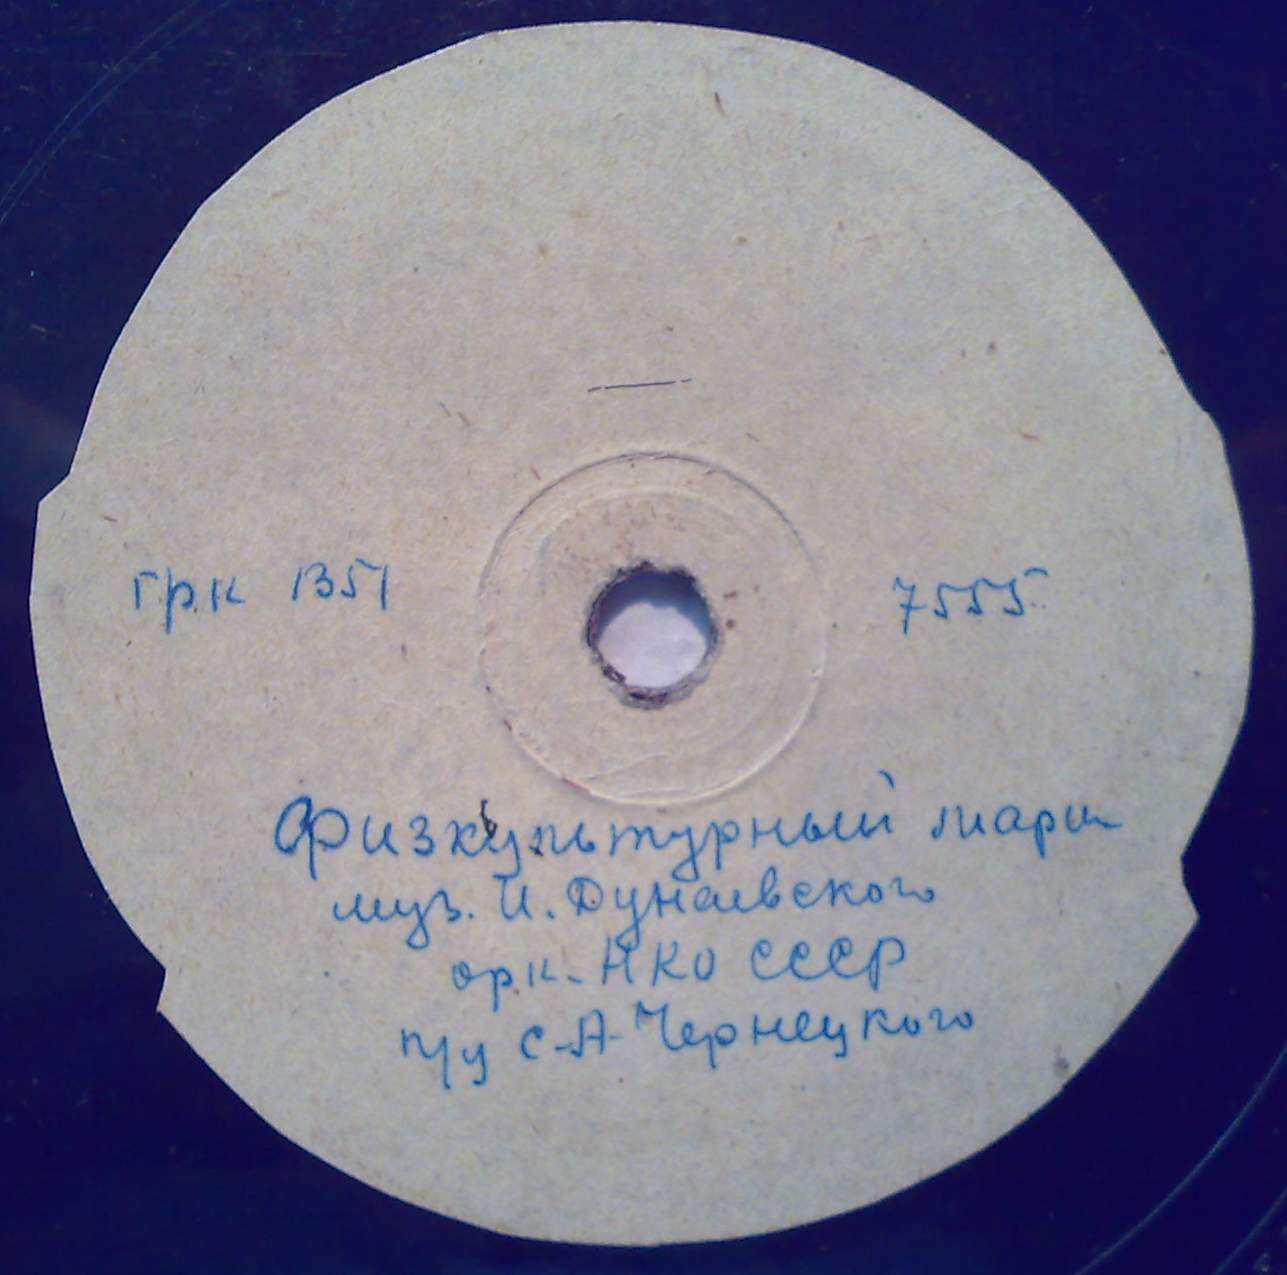 грк 1351 7555
Физкультурный марш
муз. И. Дунаевского
орк. НКО СССР
п/у С.А. Чернецкого